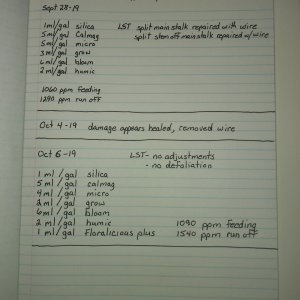 Sept 28-19
1ml/gal silica LST split main stalk repaired with wire
5ml/gal Calmag split stem off main stalk repaired w/wire
5ml/gal micro
3ml/gal grow
6ml/gal bloom
2ml/gal humic
1060 ppm feeding
1290 ppm run off
Oct 4-19 damage appears healed, removed wire
Oct 6-19 LST- no adjustments
- no defoliation
1 ml/gal silica
5 ml/gal calmag
4 ml/gal micro
2 ml/gal grow
6 ml/gal bloom
2 ml/gal humic 1090 ppm feeding
1 ml/gal Floralicious plus 1540 ppm run off